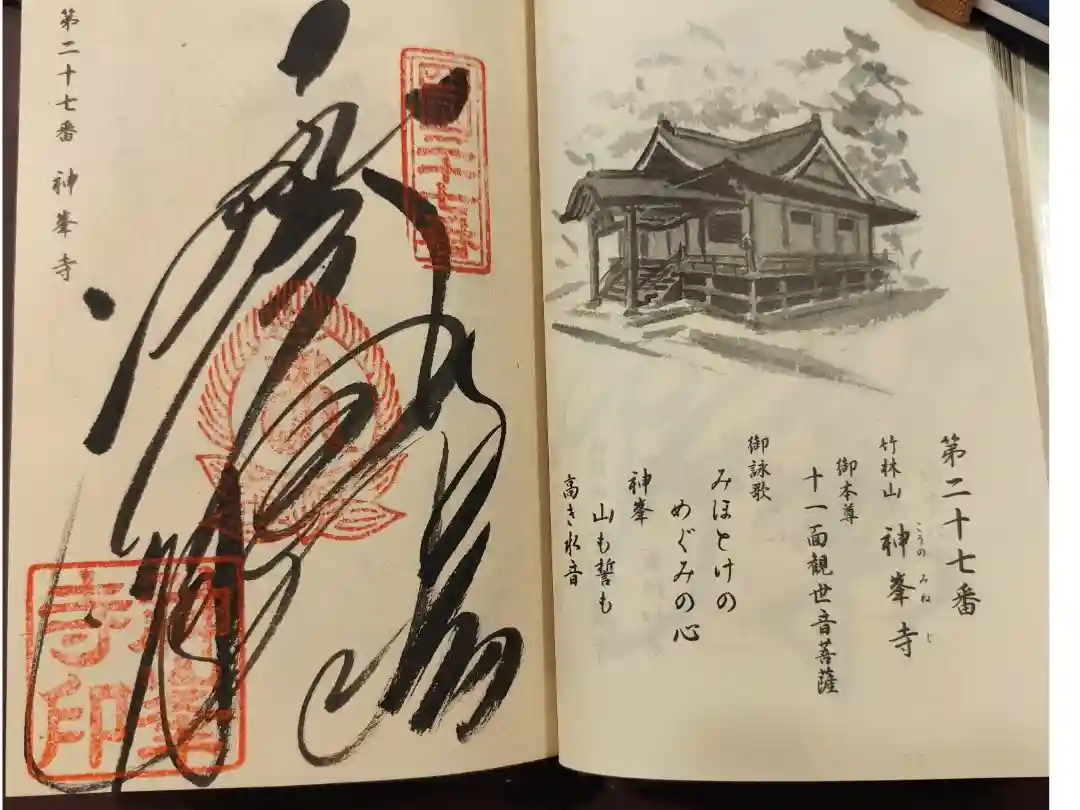 第二十七番
竹林山 神峯寺
こうの みね じ
御本尊
十一面観世音菩薩
御詠歌
みほとけの
めぐみの心
神峯
山も誓も
高き水音
神峯
寺印
第二十七番 神峯寺